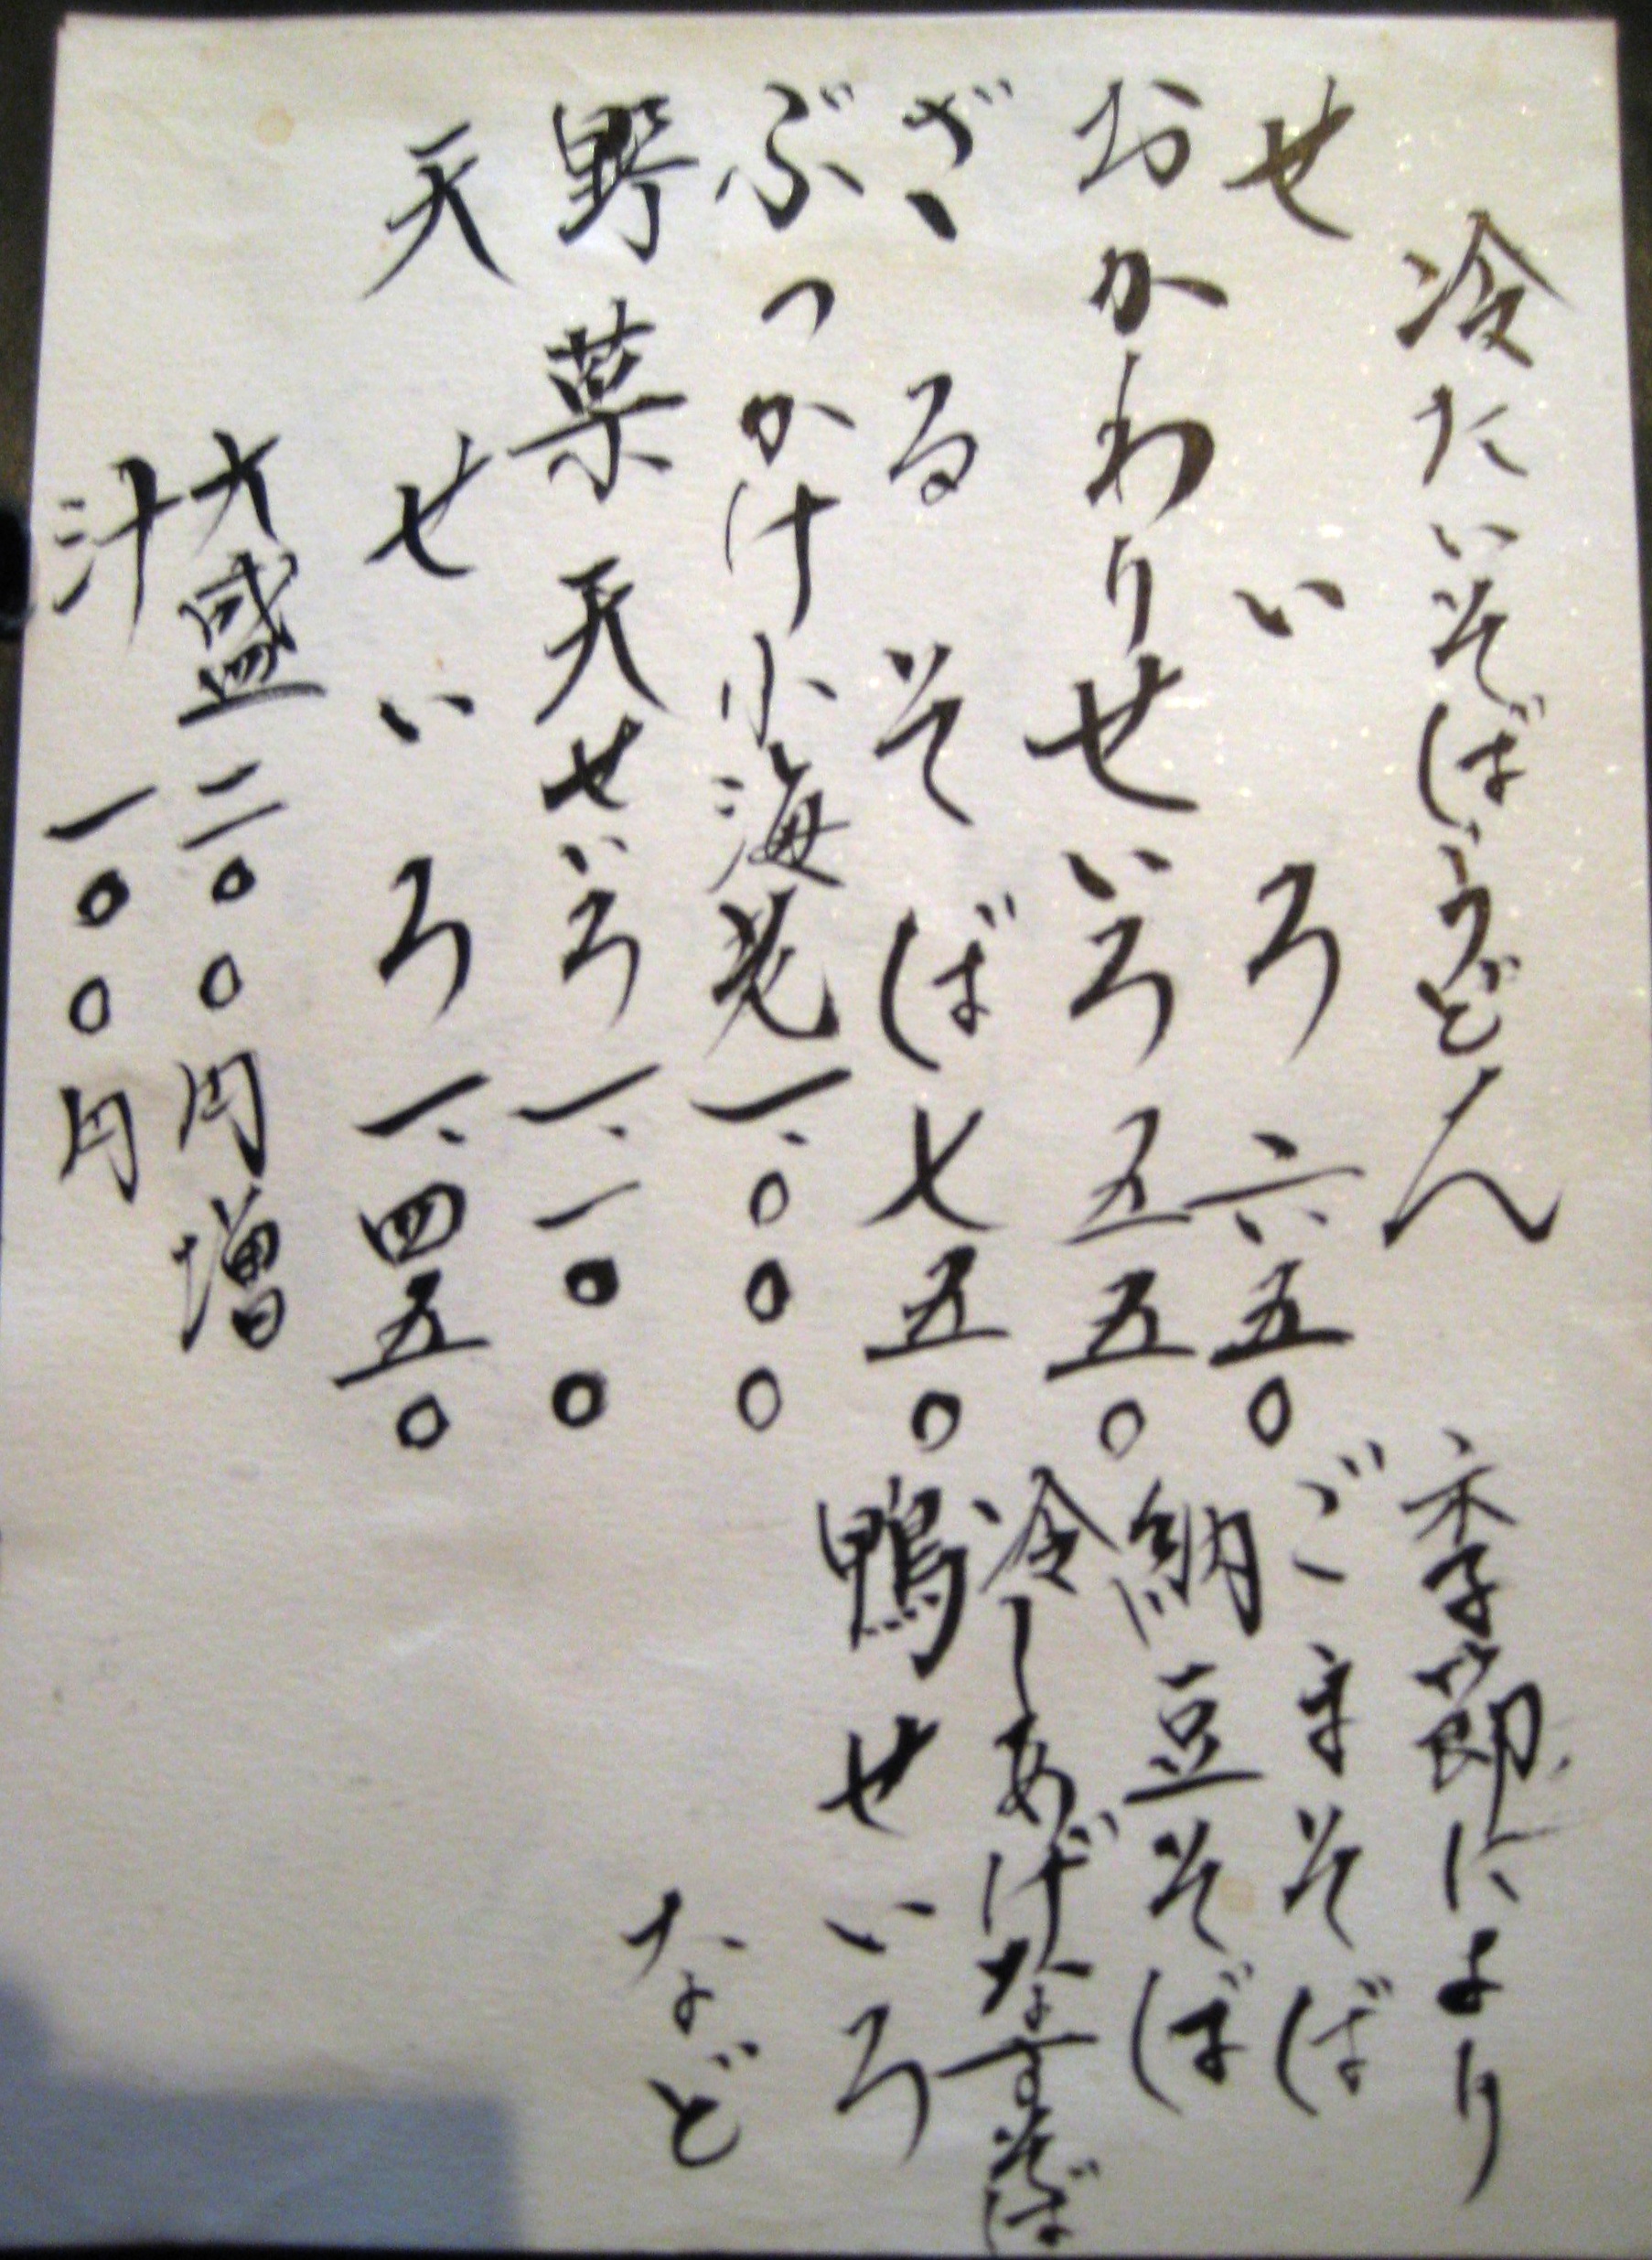 冷たいそば・うどん
せいろ 六五〇
おかわりせいろ 五五〇
ざるそば 七五〇
ぶっかけ小海老 一、〇〇〇
野菜天せいろ 一、一〇〇
天せいろ 一、四五〇
大盛 二〇〇円増
汁 一〇〇円
季節により
ごまそば
納豆そば
冷しあげなすそば
鴨せいろ
など